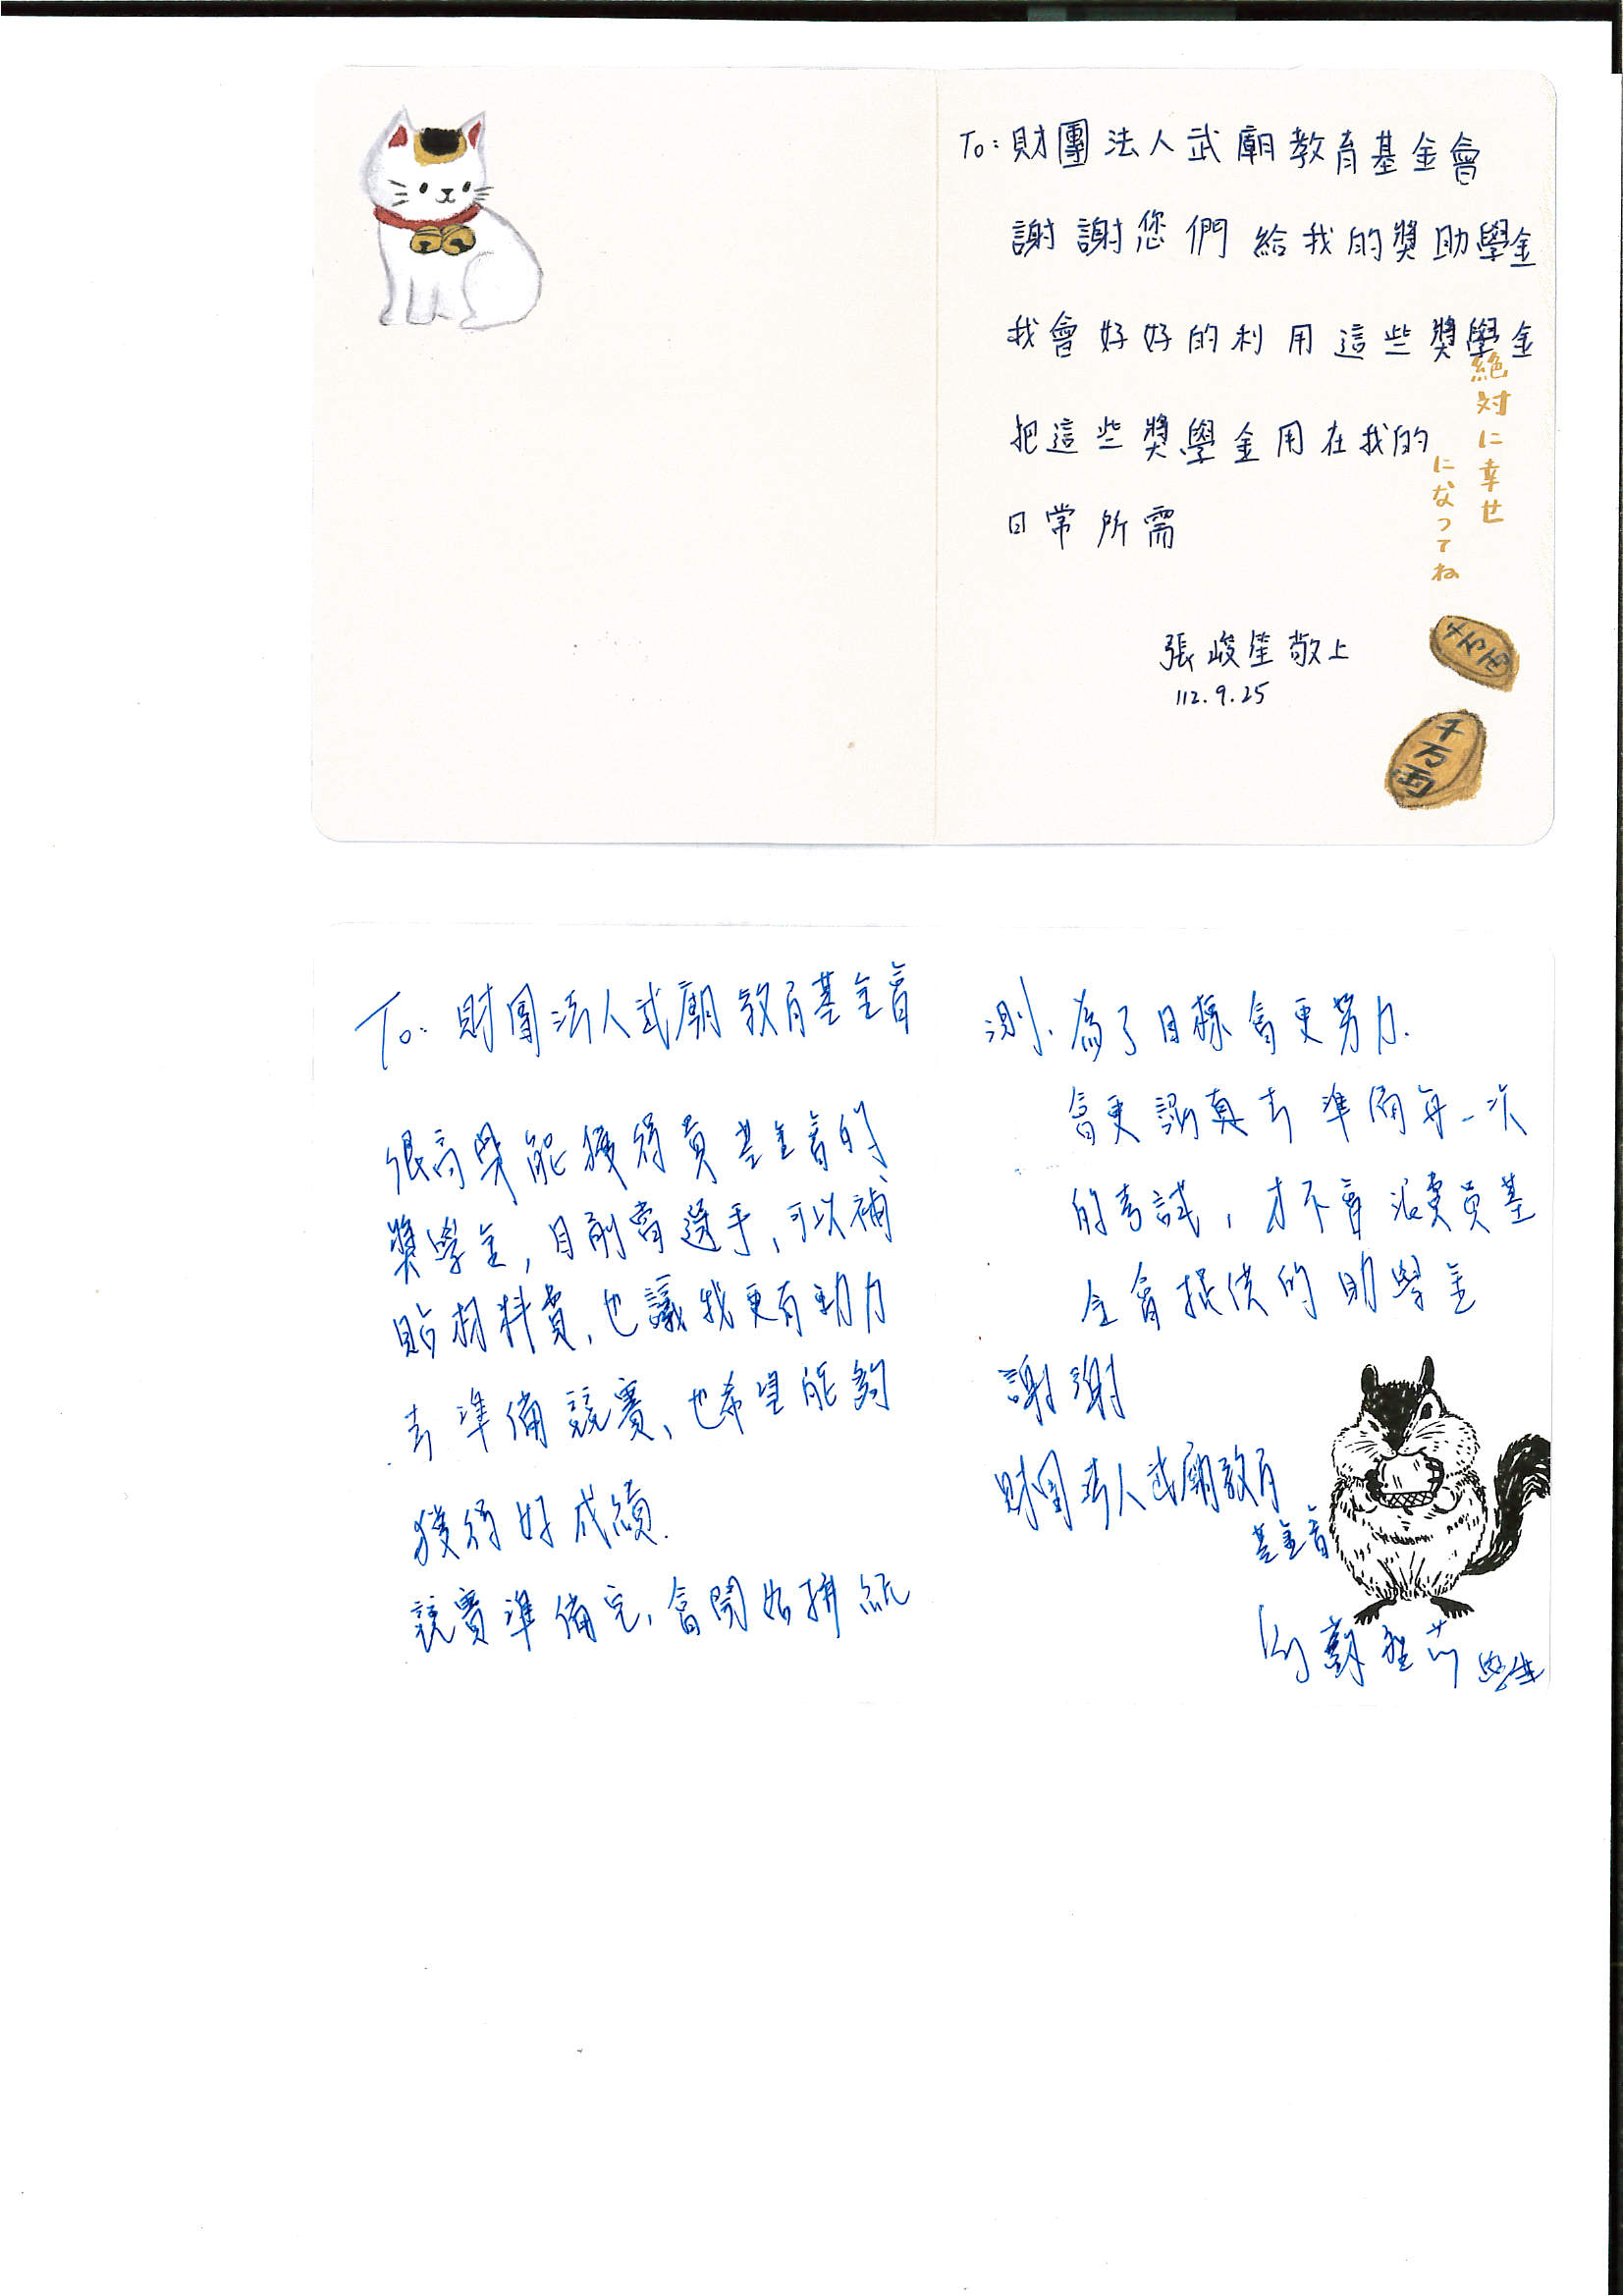 To：財團法人武廟教育基金會
謝謝您們給我的獎助學金
我會好好的利用這些獎學金
把這些獎學金用在我的
日常所需
張峻笙敬上
112.9.25
絶対に幸せ
になってね
千万両
千万両
To：財團法人武廟教育基金會
很高興能獲得貴基金會的
獎學金，目前當選手，可以補
貼材料費，也議我更有動力
去準備競賽、也希望能夠
獲得好成績.
競賽準備完，會開始拼統
測，為了目標會更努力.
會更認真去準備每一次
的考試，才不會浪費貴基
金會提供的助學金
謝謝
財團法人武廟教育
基金會
學生